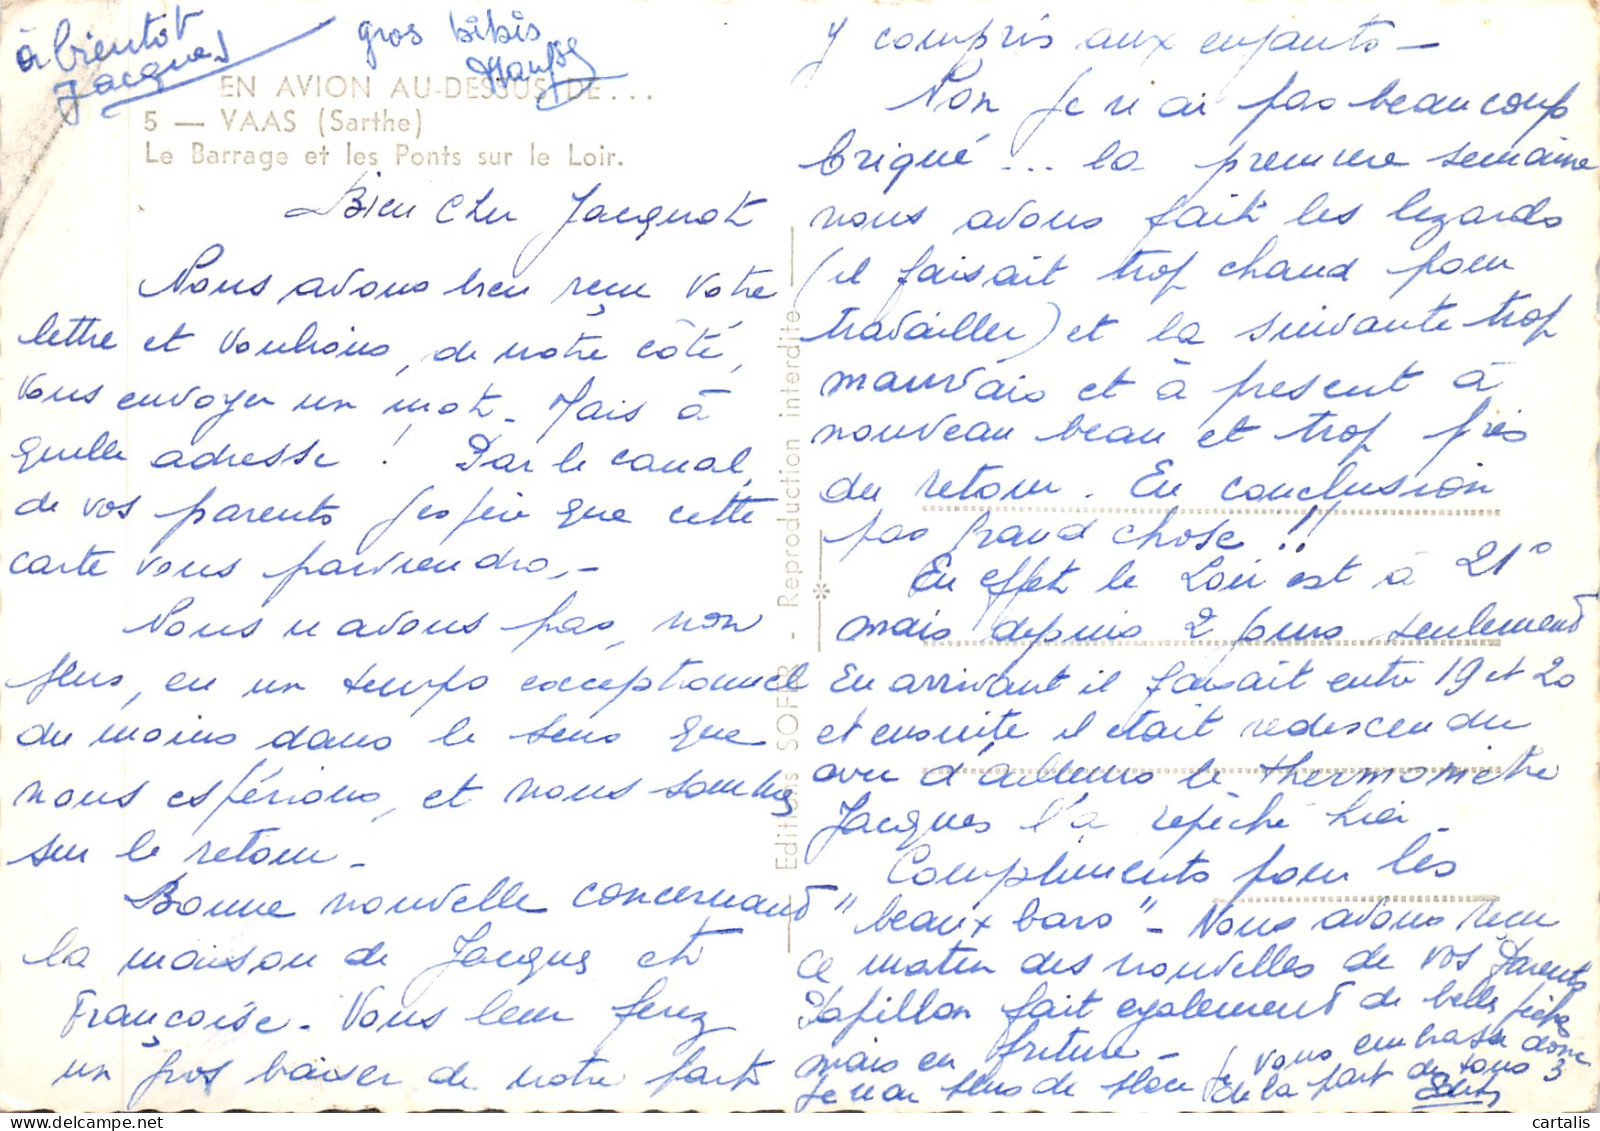 à bientôt
Jacques
gros bibis
EN AVION AU-DESSUS DE...
5 — VAAS (Sarthe)
Le Barrage et les Ponts sur le Loir.
Bien cher Jacquot
Nous avons bien reçu votre
lettre et voulions, de notre côté,
vous envoyer un mot. Mais à
quelle adresse ! Par le canal
de vos parents j'espère que cette
carte vous parviendra.-
Nous n'avons pas, non
plus, eu un temps exceptionnel
du moins dans le sens que
nous espérions, et nous sommes
sur le retour -
Bonne nouvelle concernant
la maison de Jacques et
Françoise - Vous leur ferez
un gros baiser de notre part
Editions SOFER - Reproduction interdite
y compris aux enfants -
Non je n'ai pas beaucoup
briqué ... la première semaine
nous avons fait les lezards
(il faisait trop chaud pour
travailler) et la suivante trop
mauvais et à présent à
nouveau beau et trop près
du retour. En conclusion
pas grand chose !!
En effet le Loir est à 21°
mais depuis 2 jours seulement
En arrivant il faisait entre 19 et 20
et ensuite il était redescendu
avec d'ailleurs le thermomètre
Jacques l'a repêché hier -
Compliments pour les
"beaux bars" - Nous avons reçu
ce matin des nouvelles de vos Parents
Papillon fait également de belles pêches
mais en friture -
Je n'ai plus de place je vous embrasse donc
de la part de tous 3